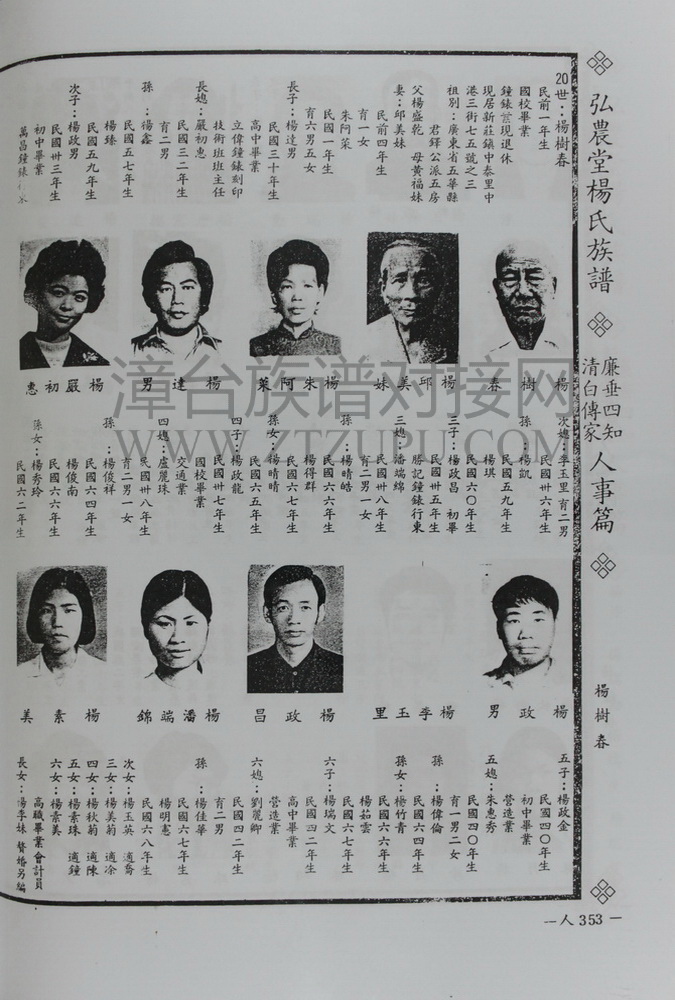 弘農堂楊氏族譜
廉垂四知
清白傳家
人事篇
楊樹春
一人353一
20世：楊樹春
民前一年生
國校畢業
鐘錶業現退休
現居新莊鎮中泰里中
港三街七五號之三
祖別：廣東省五華縣
君鐸公派五房
父楊盛乾 母黃福妹
妻：邱美妹
民前四年生
育一女
朱阿菜
民國一年生
育六男五女
長子：楊達男
民國三十年生
高中畢業
立偉鐘錶刻印
技術班班主任
長媳：嚴初惠
民國三二年生
育二男
孫：楊鑫
民國五七年生
楊臻
民國五九年生
次子：楊政男
民國卅三年生
初中畢業
萬昌鐘錶行東
楊樹春
楊邱美妹
楊朱阿菜
楊達男
楊嚴初惠
次媳：李玉里 育二男
民國卅六年生
孫：楊凱
民國五九年生
楊琪
民國六〇年生
三子：楊政昌 初畢
民國卅五年生
勝記鐘錶行東
三媳：潘端錦
民國卅八年生
育二男一女
孫：楊晴皓
民國六六年生
楊得群
民國六七年生
孫女：楊晴晴
民國六五年生
四子：楊政龍
民國卅七年生
國校畢業
交通業
四媳：盧麗珠
民國卅八年生
育二男一女
孫：楊俊祥
民國六四年生
楊俊南
民國六六年生
孫女：楊秀玲
民國六二年生
楊政男
楊李玉里
楊政昌
楊潘端錦
楊素美
五子：楊政金
民國四〇年生
初中畢業
營造業
五媳：朱惠秀
民國四〇年生
育一男二女
孫：楊偉倫
民國六四年生
孫女：楊竹青
民國六六年生
楊茹雲
民國六七年生
六子：楊瑞文
民國四二年生
高中畢業
營造業
六媳：劉麗卿
民國四二年生
育二男
孫：楊佳華
民國六七年生
楊明憲
民國六八年生
次女：楊玉英 適喬
三女：楊美菊 適凃
四女：楊秋菊 適陳
五女：楊素珠 適鐘
六女：楊素美
高職畢業會計員
長女：湯李妹 贅婚另編
漳台族谱对接网
WWW.ZTZUPU.COM